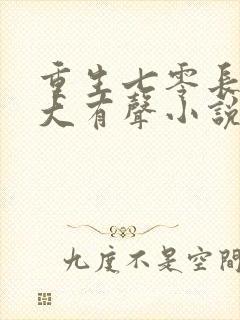 重生七零長
大有聲小說
九度不是空間